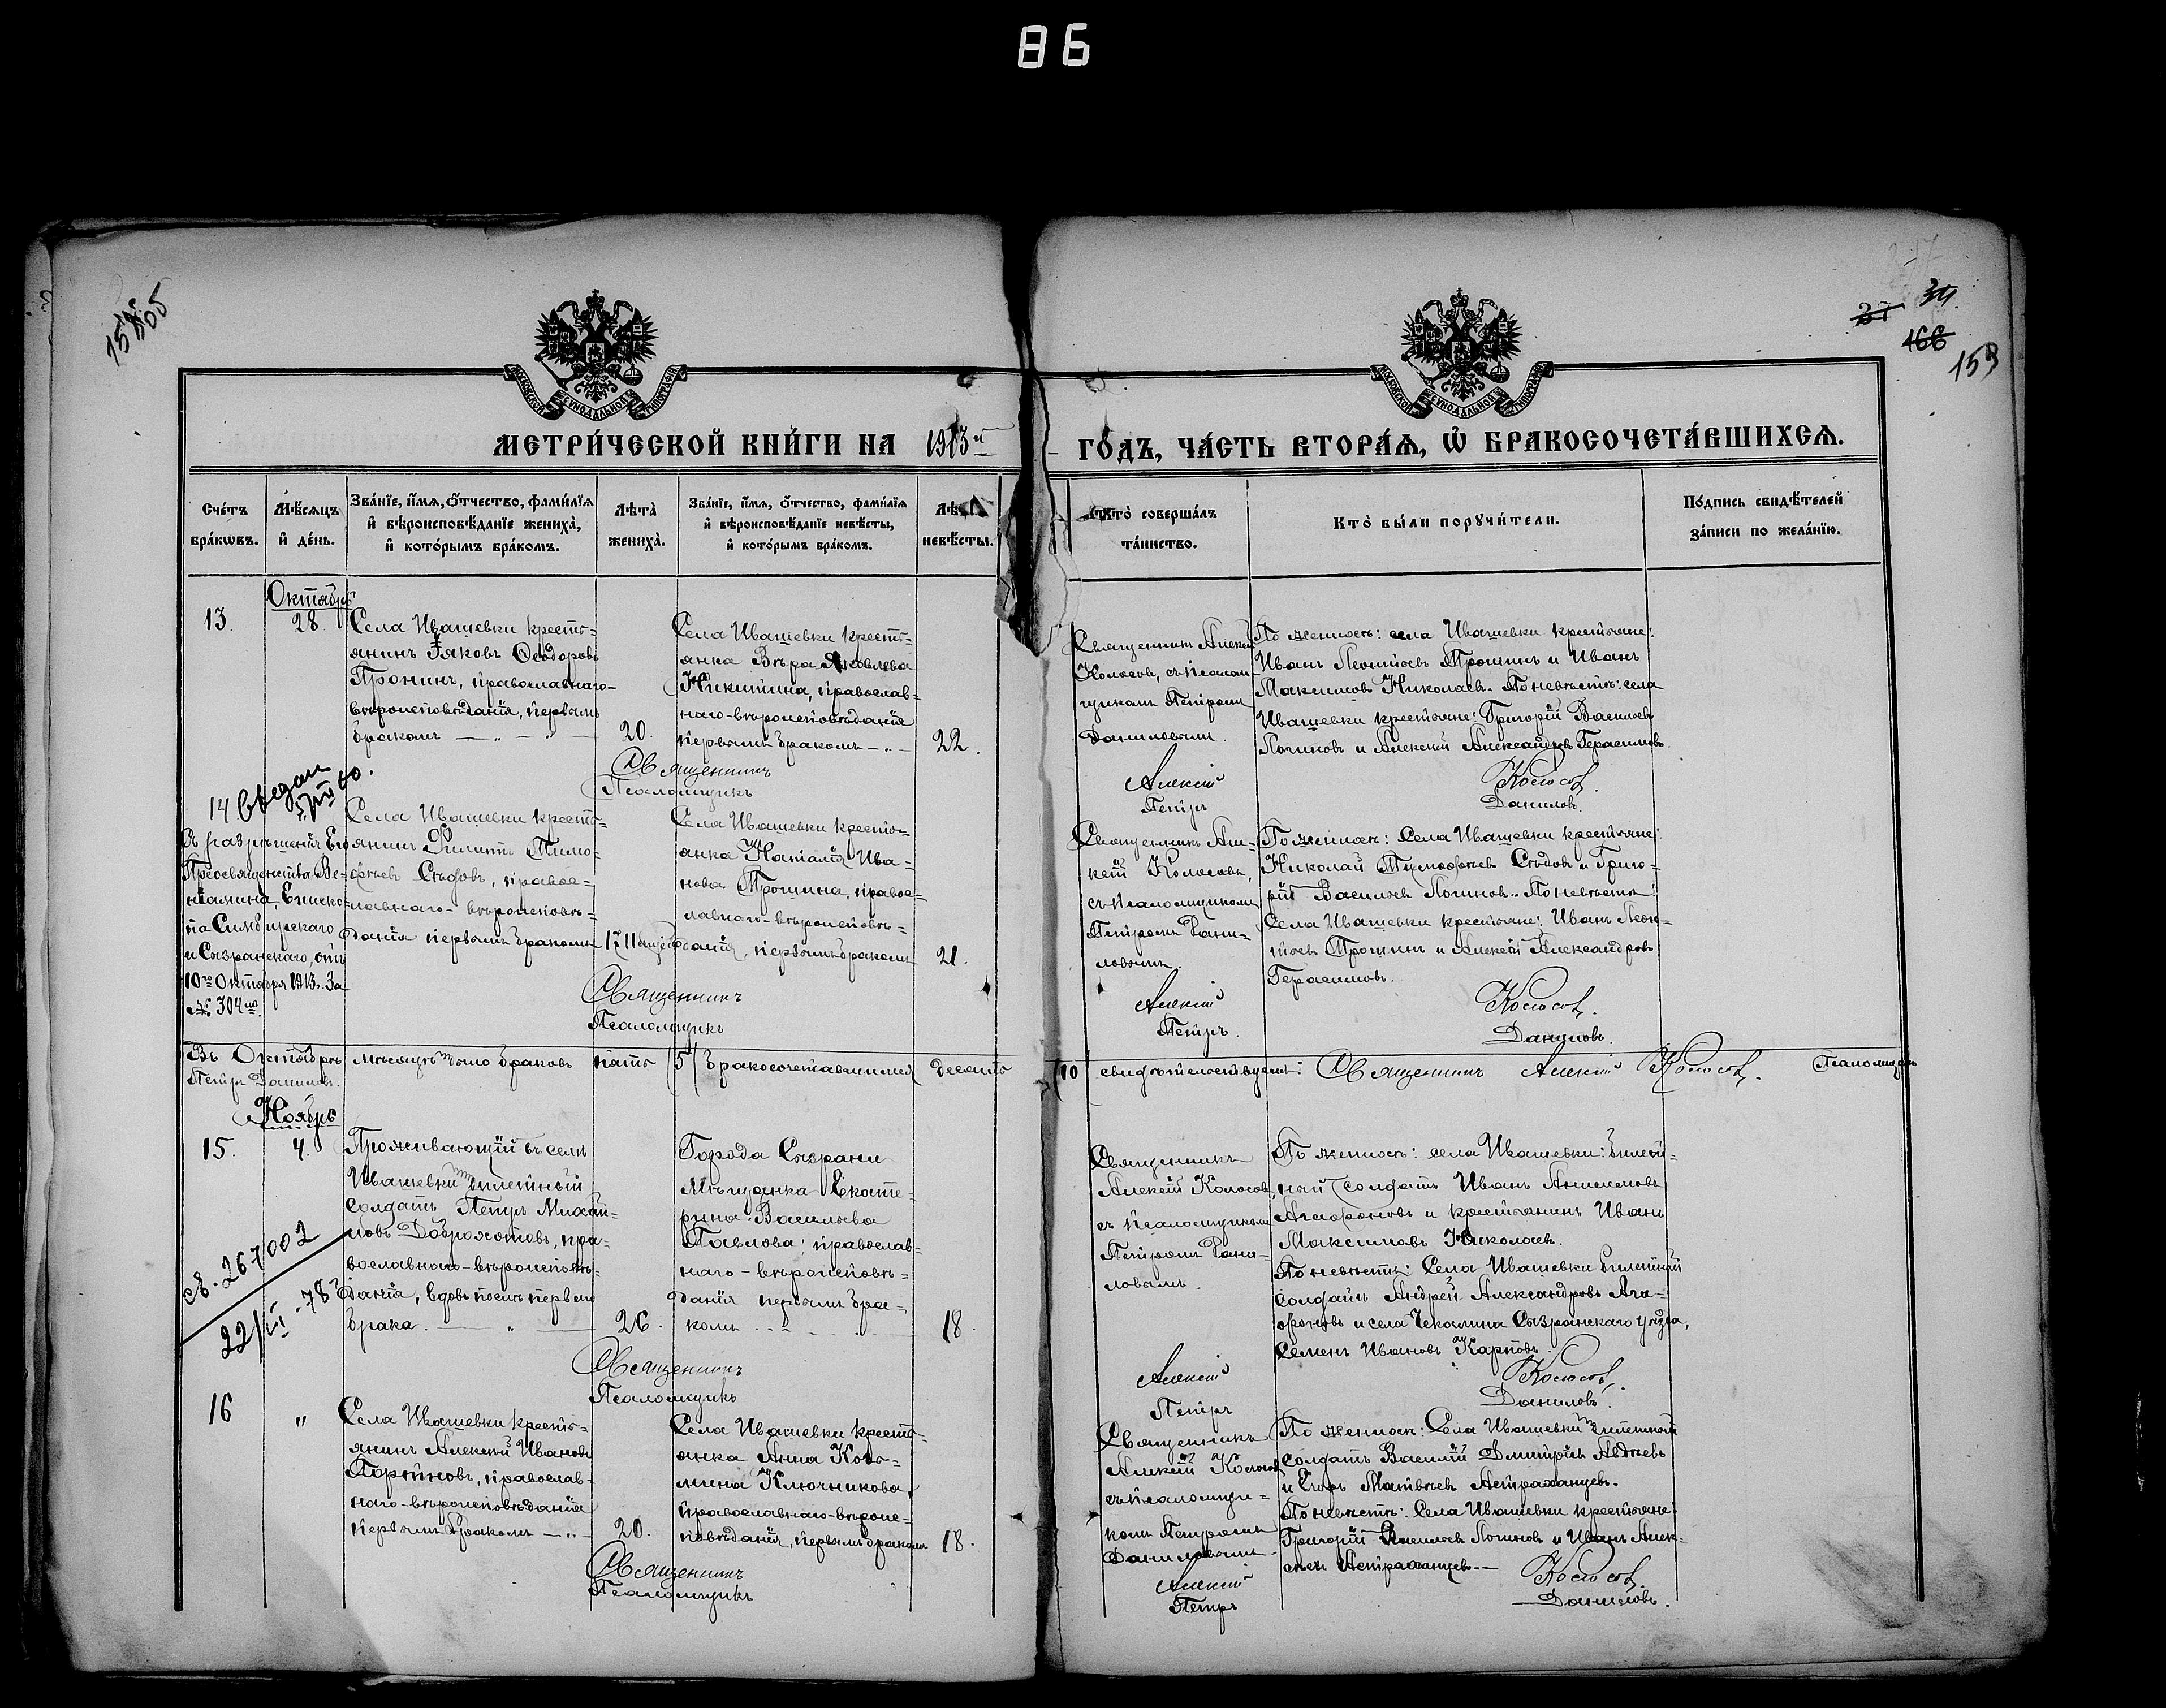 86
155
37 34.
166
153
МОСКОВСКОЙ СУНОДАЛЬНОЙ ТИПОГРАФІИ
МОСКОВСКОЙ СУНОДАЛЬНОЙ ТИПОГРАФІИ
МЕТРИ́ЧЕСКОЙ КНИ́ГИ НА 1913й ГО́ДЪ, ЧА́СТЬ ВТОРА́Я, Ѿ БРАКОСОЧЕТА́ВШИХСЯ.
Сче́тъ бра́ковъ.
Мѣ́сяцъ и де́нь.
Зва́нїе, и́мя, ѻ́тчество, фами́лїя
и вѣроисповѣ́данїе жениха̀,
и кото́рымъ бра́комъ.
Лѣта̀ жениха̀.
Зва́нїе, и́мя, ѻ́тчество, фами́лїя
и вѣроисповѣ́данїе невѣ́сты,
и кото́рымъ бра́комъ.
Лѣта̀ невѣ́сты.
Кто̀ соверша́лъ
та́инство.
Кто̀ бы́ли порꙋчи́тели.
По́дпись свидѣ́телей
за́писи по жела́нїю.
13.
Октябрь
28.
Села Ивашевки кресть=
янинъ Іаковъ Ѳеодоровъ
Пронинъ, православнаго-
вѣроисповѣданія, первымъ
бракомъ — „ — „ —
20.
Села Ивашевки кресть=
янка Вѣра Яковлева
Никитина, православ=
наго-вѣроисповѣданія
первымъ бракомъ — „ —
22.
Священникъ Алексій
Колосовъ, съ псалом-
щикомъ Петромъ
Даниловымъ.
По женихѣ: села Ивашевки крестьяне:
Иванъ Леонтьевъ Трошинъ и Иванъ
Максимовъ Николаевъ. По невѣстѣ: села
Ивашевки крестьяне: Григорій Васильевъ
Логиновъ и Алексѣй Александровъ Герасимовъ.
Священникъ Алексій Колосовъ.
Псаломщикъ Петръ Даниловъ.
14
Съ разрѣшенія Его
Преосвященства Ве-
ніамина, Еписко-
па Симбирскаго
и Сызранскаго, отъ
10го Октября 1913г. За
№ 304м.
Села Ивашевки кресть=
янинъ Филиппъ Тимо=
фѣевъ Сѣдовъ, правос=
лавнаго-вѣроисповѣ=
данія первымъ бракомъ
17
Села Ивашевки кресть=
янка Наталія Ива=
нова Трошина, правос=
лавнаго-вѣроисповѣ=
данія, первымъ бракомъ
21.
Священникъ Але-
ксій Колосовъ,
съ псаломщикомъ
Петромъ Дани-
ловымъ.
По женихѣ: Села Ивашевки крестьяне:
Николай Тимофѣевъ Сѣдовъ и Григо-
рій Васильевъ Логиновъ. По невѣстѣ:
Села Ивашевки крестьяне: Иванъ Леон-
тьевъ Трошинъ и Алексѣй Александровъ
Герасимовъ.
Священникъ Алексій Колосовъ.
Псаломщикъ Петръ Даниловъ.
Въ Октябрѣ мѣсяцѣ было браковъ пять /5/ бракосочетавшихся десять /10/ свидѣтельствуемъ: Священникъ Алексій Колосовъ. Псаломщикъ
Петръ Даниловъ.
Ноябрь
15.
4.
Проживающій въ селѣ
Ивашевкѣ билетный
солдатъ Петръ Михай=
ловъ Доброхотовъ, пра=
вославнаго-вѣроисповѣ=
данія, вдовъ послѣ перваго
брака. — „ —
св. 267002
22/VI-78г
26.
Города Сызрани
Мѣщанка Екате-
рина Васильева
Павлова, православ=
наго-вѣроисповѣ=
данія первымъ бра=
комъ
18.
Священникъ
Алексій Колосовъ,
съ псаломщикомъ
Петромъ Дани-
ловымъ.
По женихѣ: села Ивашевки: билет=
ный солдатъ Иванъ
Агафоновъ и крестьянинъ Иванъ
Максимовъ Николаевъ.
По невѣстѣ: Села Ивашевки билетный
солдатъ Андрей Александровъ Ага=
фоновъ и села Чекалина Сызранскаго уѣзда,
Семенъ Ивановъ Карповъ.
Священникъ Алексій Колосовъ.
Псаломщикъ Петръ Даниловъ.
16
„
Села Ивашевки кресть=
янинъ Алексѣй Ивановъ
Портновъ, православ-
наго-вѣроисповѣданія
первымъ бракомъ — „ —
20.
Села Ивашевки кресть=
янка Анна Козь=
мина Ключникова,
православнаго-вѣроис=
повѣданія, первымъ бракомъ
18.
Священникъ
Алексій Колосовъ
съ псаломщи=
комъ Петромъ
Даниловымъ
По женихѣ: Села Ивашевки билетный
солдатъ Василій Дмитріевъ Авдѣевъ
и Егоръ Матвѣевъ Астраханцевъ.
По невѣстѣ: Села Ивашевки крестьяне:
Григорій Васильевъ Логиновъ и Иванъ Алек-
сѣевъ Астраханцевъ.—
Священникъ Алексій Колосовъ.
Псаломщикъ Петръ Даниловъ.